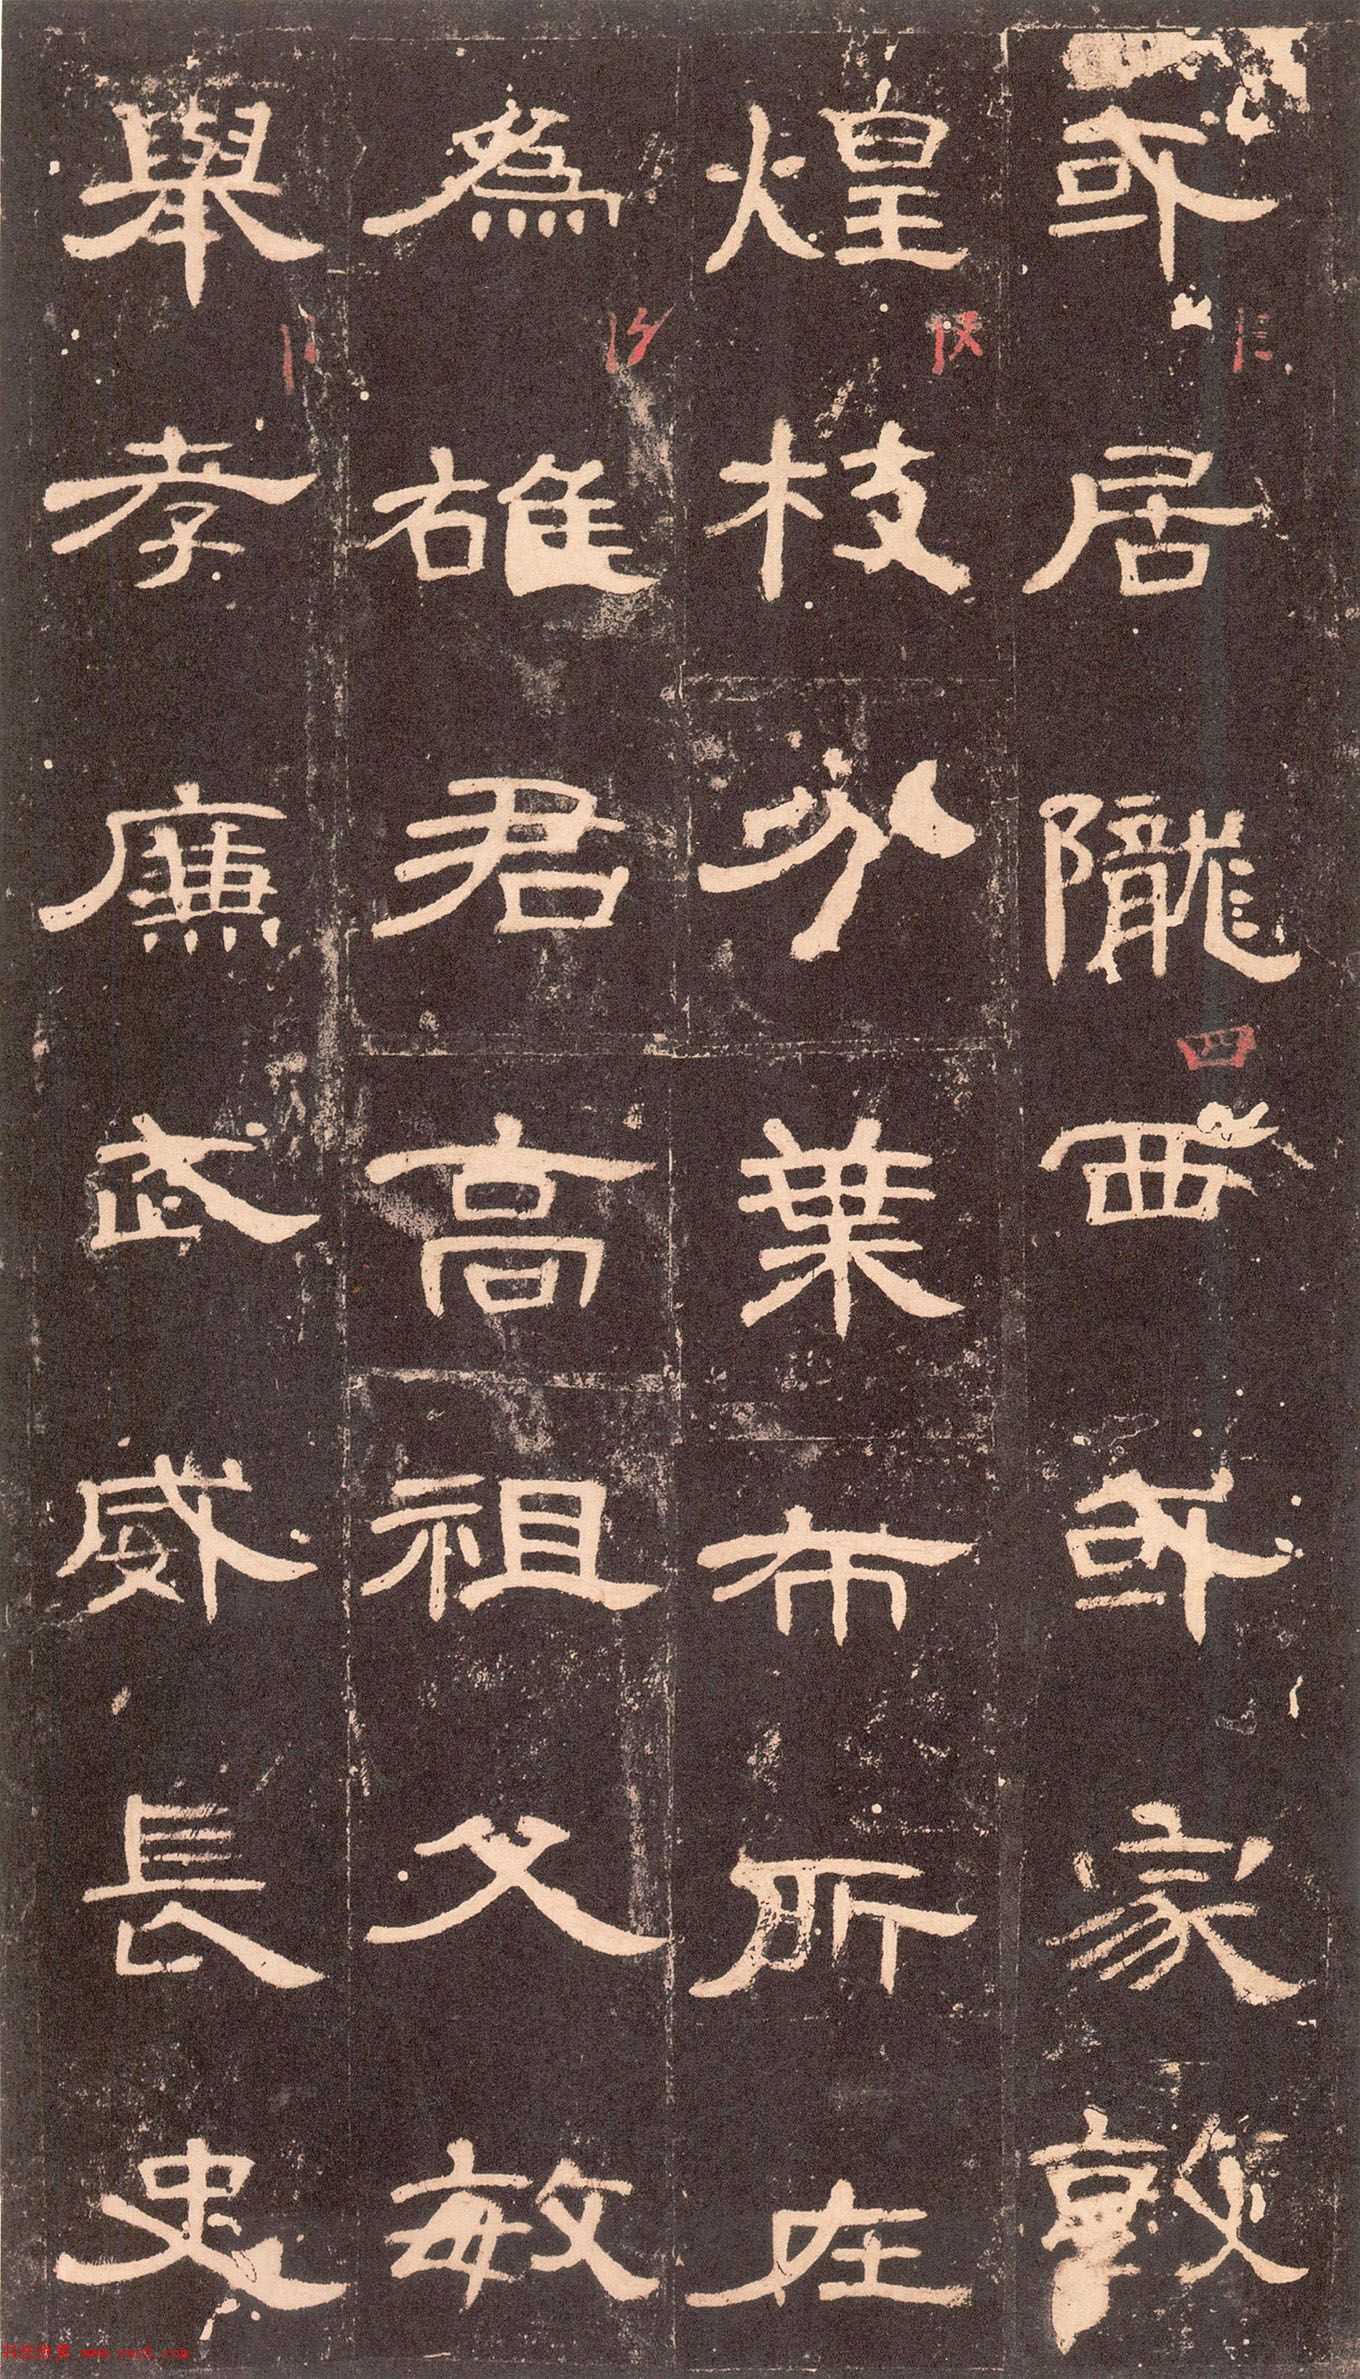 或居隴西或家敦
煌枝分葉布所在
為雄君高祖父敏
舉孝廉武威長史
四
www.yac8.com